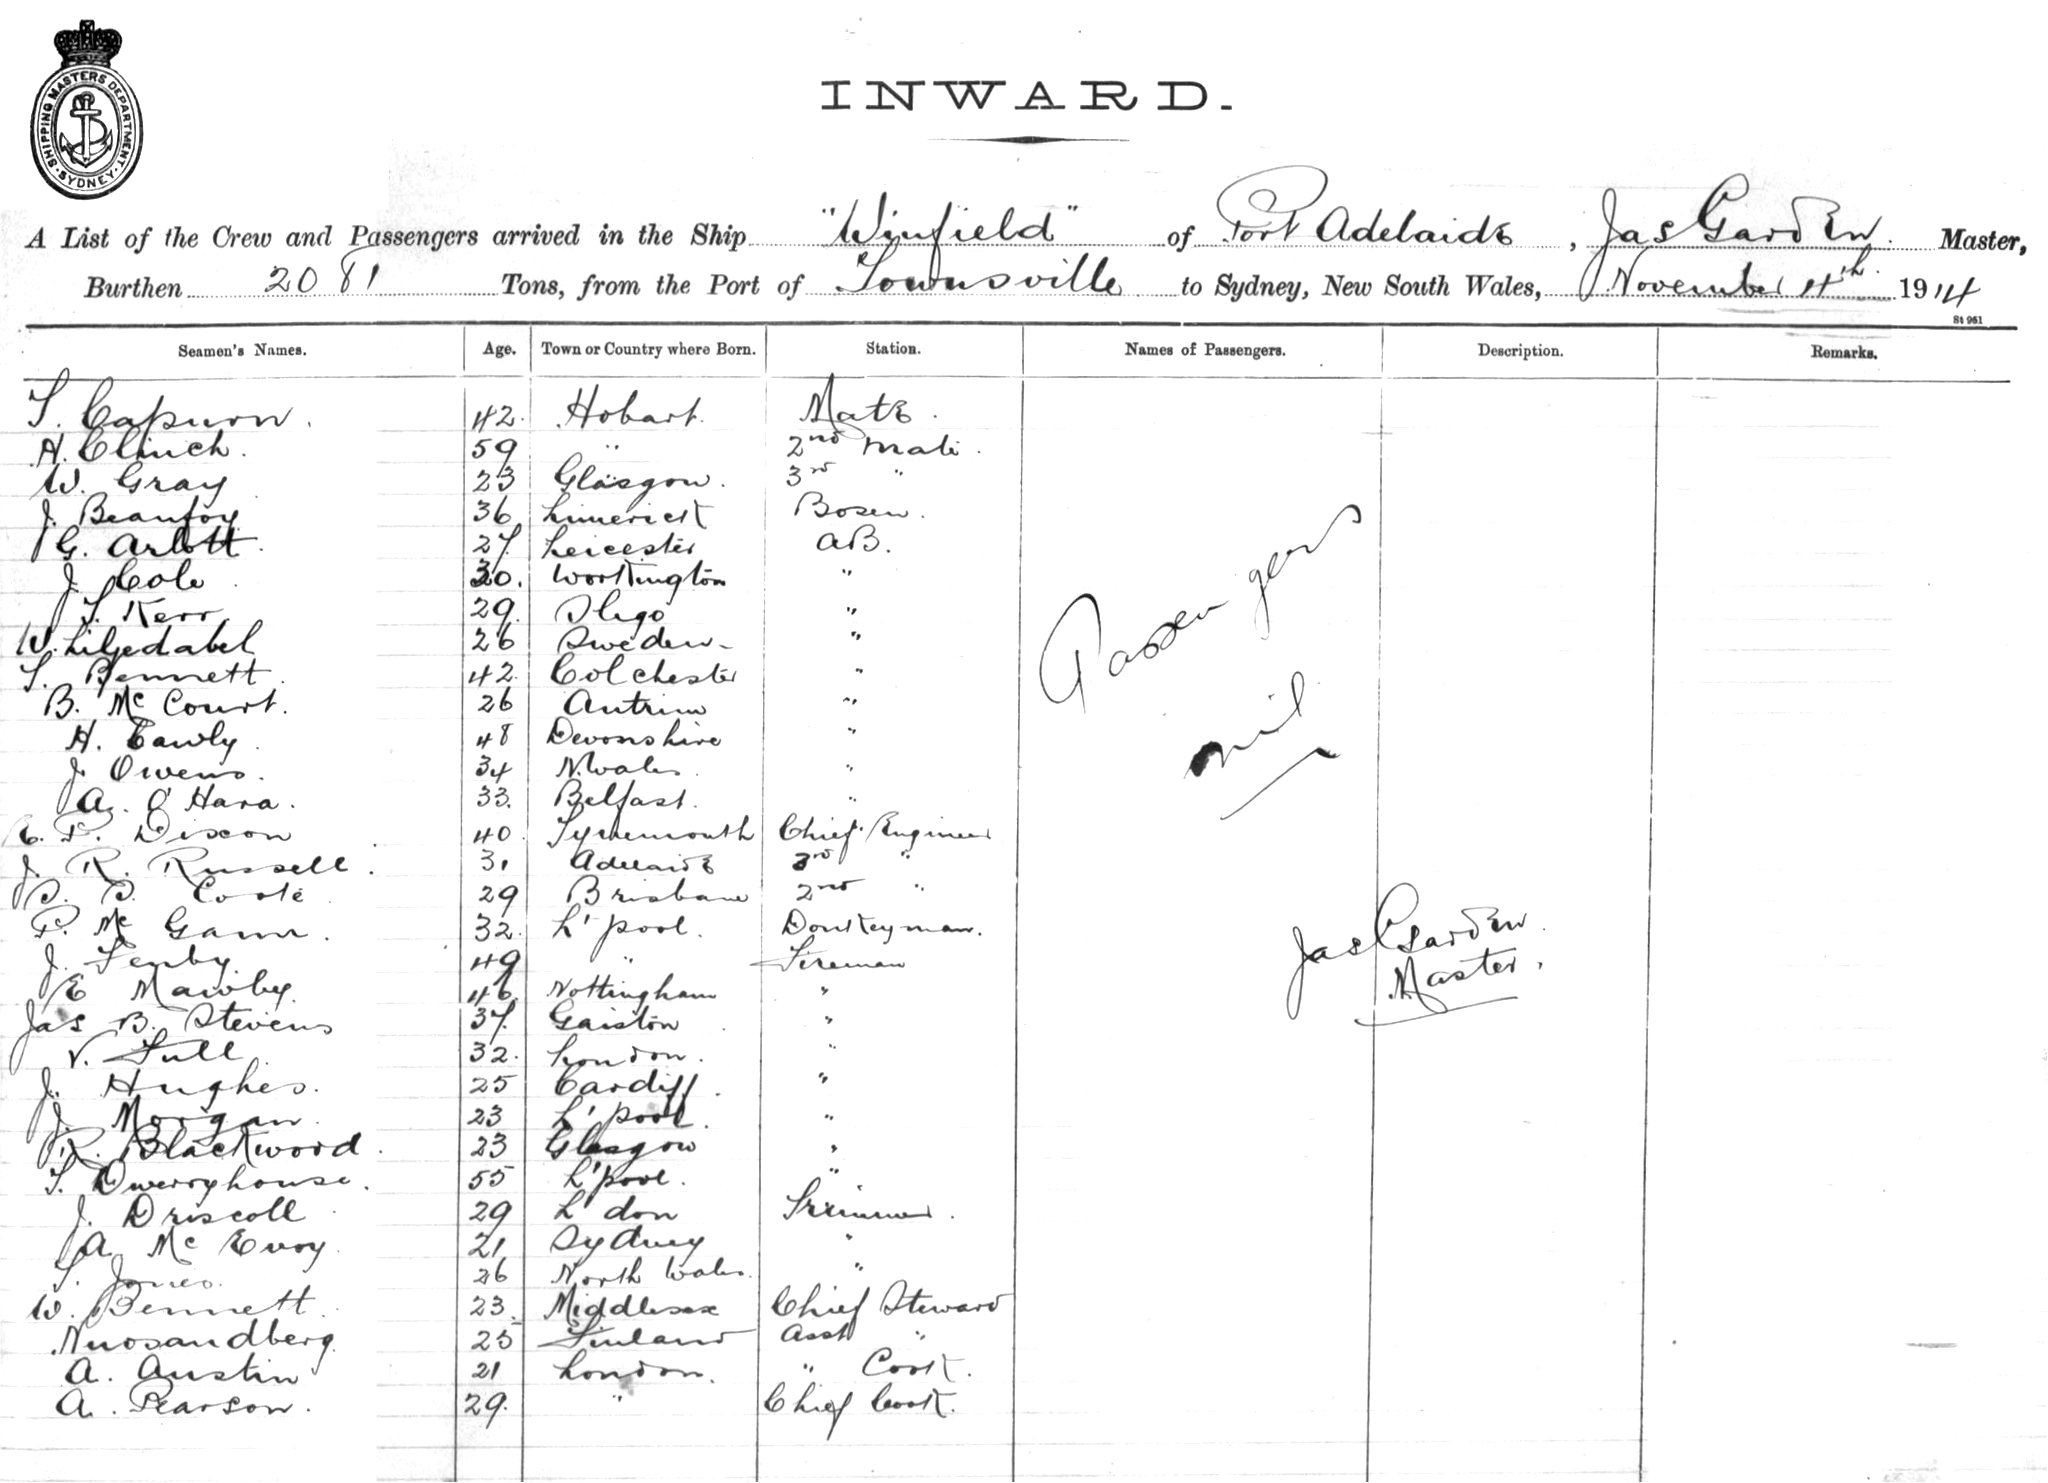 SHIPPING MASTERS DEPARTMENT
SYDNEY
INWARD.
A List of the Crew and Passengers arrived in the Ship "Winfield" of Port Adelaide, Jas Garden. Master,
Burthen 2081 Tons, from the Port of Townsville to Sydney, New South Wales, November 4th. 1914
St 961
Seamen's Names. Age. Town or Country where Born. Station. Names of Passengers. Description. Remarks.
T. Capurn. 42. Hobart. Mate.
H. Clinch. 59 " 2nd Mate.
W. Gray 23 Glasgow. 3rd "
J. Beaufoy 36 Limerick Bosen.
G. Arlott. 27. Leicester AB.
J. Cole 30. Workington "
T. Kerr 29. Sligo "
W. Liljedabel 26 Sweden "
T. Bennett. 42. Colchester "
B. Mc Court. 26 Antrim "
H. Cawly. 48 Devonshire "
J. Owens. 34 N. Wales. "
A. O'Hara. 33. Belfast. "
C. F. Dixon 40 Tynemouth Chief Engineer
J. R. Russell. 31 Adelaide 3rd "
S. S. Coote 29 Brisbane 2nd "
P. Mc Gann. 32. L'pool. Donkeyman.
J. Fenby. 49 " Fireman
E Mawby. 46 Nottingham "
Jas B. Stevens 37. Gaiston "
V. Full. 32. London. "
J. Hughes. 25 Cardiff. "
J. Morgan. 23 L'pool "
R. Blackwood. 23 Glasgow "
T. Dwerryhouse. 55 L'pool. "
J. Driscoll 29 L'don Trimmer.
A. Mc Evoy. 21 Sydney "
T. Jones. 26 North Wales. "
W. Bennett. 23. Middlesex Chief Steward
Nuosandberg. 25 Finland Asst "
A. Austin 21 London. " Cook.
A. Pearson. 29. " Chief Cook.
Passengers
nil
Jas Garden.
Master.